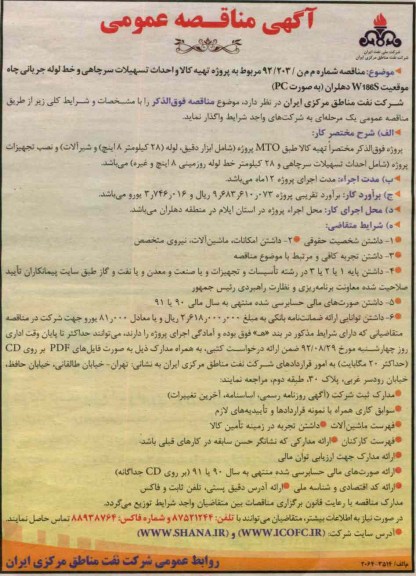 آگهی مناقصه عمومی
شرکت ملی نفت ایران
شرکت نفت مناطق مرکزی ایران
موضوع: مناقصه شماره م م ن / ۹۲/۲۰۳ مربوط به پروژه تهیه کالا و احداث تسهیلات سرچاهی و خط لوله جریانی چاه
موقعیت W186S دهلران (به صورت PC)
شرکت نفت مناطق مرکزی ایران در نظر دارد، موضوع مناقصه فوق‌الذکر را با مشخصات و شرایط کلی زیر از طریق
مناقصه عمومی یک مرحله‌ای به شرکت‌های واجد شرایط واگذار نماید.
الف) شرح مختصر کار:
پروژه فوق‌الذکر مختصراً تهیه کالا طبق MTO پروژه (شامل ابزار دقیق، لوله (۲۸ کیلومتر ۸ اینچ) و شیرآلات) و نصب تجهیزات
پروژه (شامل احداث تسهیلات سرچاهی و ۲۸ کیلومتر خط لوله روزمینی ۸ اینچ و غیره) می‌باشد.
ب) مدت اجراء: مدت اجرای پروژه ۱۲ماه می‌باشد.
ج) برآورد کار: برآورد تقریبی پروژه ۹٫۶۸۳٫۶۱۰٫۰۷۳ ریال و ۳٫۷۴۶٫۰۱۶ یورو می‌باشد.
د) محل اجرای کار: محل اجراء پروژه در استان ایلام در منطقه دهلران می‌باشد.
ه) شرایط متقاضی:
۱- داشتن شخصیت حقوقی ۲- داشتن امکانات، ماشین‌آلات، نیروی متخصص
۳- داشتن تجربه کافی و مرتبط با موضوع مناقصه
۴- داشتن پایه ۱ یا ۲ یا ۳ در رشته تأسیسات و تجهیزات و یا صنعت و معدن و یا نفت و گاز طبق سایت پیمانکاران تأیید
صلاحیت شده معاونت برنامه‌ریزی و نظارت راهبردی رئیس جمهور
۵- داشتن صورت‌های مالی حسابرسی شده منتهی به سال مالی ۹۰ یا ۹۱
۶- داشتن توانایی ارائه ضمانت‌نامه بانکی به مبلغ ۲٫۶۱۸٫۰۰۰٫۰۰۰ ریال و یا معادل ۸۱٫۰۰۰ یورو جهت شرکت در مناقصه
متقاضیانی که دارای شرایط مذکور در بند «هـ» فوق بوده و آمادگی اجرای پروژه را دارند، می‌توانند حداکثر تا پایان وقت اداری
روز چهارشنبه مورخ ۹۲/۰۸/۲۹ ضمن ارائه درخواست کتبی، به همراه مدارک ذیل به صورت فایل‌های PDF بر روی CD
(حداکثر ۲۰ مگابایت) به امور قراردادهای شرکت نفت مناطق مرکزی ایران به نشانی: تهران- خیابان طالقانی، خیابان حافظ،
خیابان رودسر غربی، پلاک ۳۰، طبقه دوم، مراجعه نمایند:
مدارک ثبت شرکت (آگهی روزنامه رسمی، اساسنامه، آخرین تغییرات)
سوابق کاری همراه با نمونه قراردادها و تأییدیه‌های لازم
فهرست ماشین‌آلات داشتن تجربه در زمینه تأمین کالا
فهرست کارکنان ارائه مدارکی که نشانگر حسن سابقه در کارهای قبلی باشد
ارائه مدارک جهت ارزیابی توان مالی
ارائه صورت‌های مالی حسابرسی شده منتهی به سال ۹۰ یا ۹۱ (بر روی CD جداگانه)
ارائه کد اقتصادی و شناسه ملی ارائه آدرس دقیق پستی، تلفن ثابت و فاکس
مدارک مناقصه با رعایت قانون برگزاری مناقصات بین متقاضیان واجد شرایط توزیع می‌گردد.
در صورت نیاز به اطلاعات بیشتر، متقاضیان می‌توانند با تلفن: ۸۷۵۲۱۲۴۴ و شماره فاکس: ۸۸۹۳۸۷۶۴ تماس حاصل نمایند.
آدرس سایت شرکت: (WWW.ICOFC.IR) و (WWW.SHANA.IR)
روابط عمومی شرکت نفت مناطق مرکزی ایران